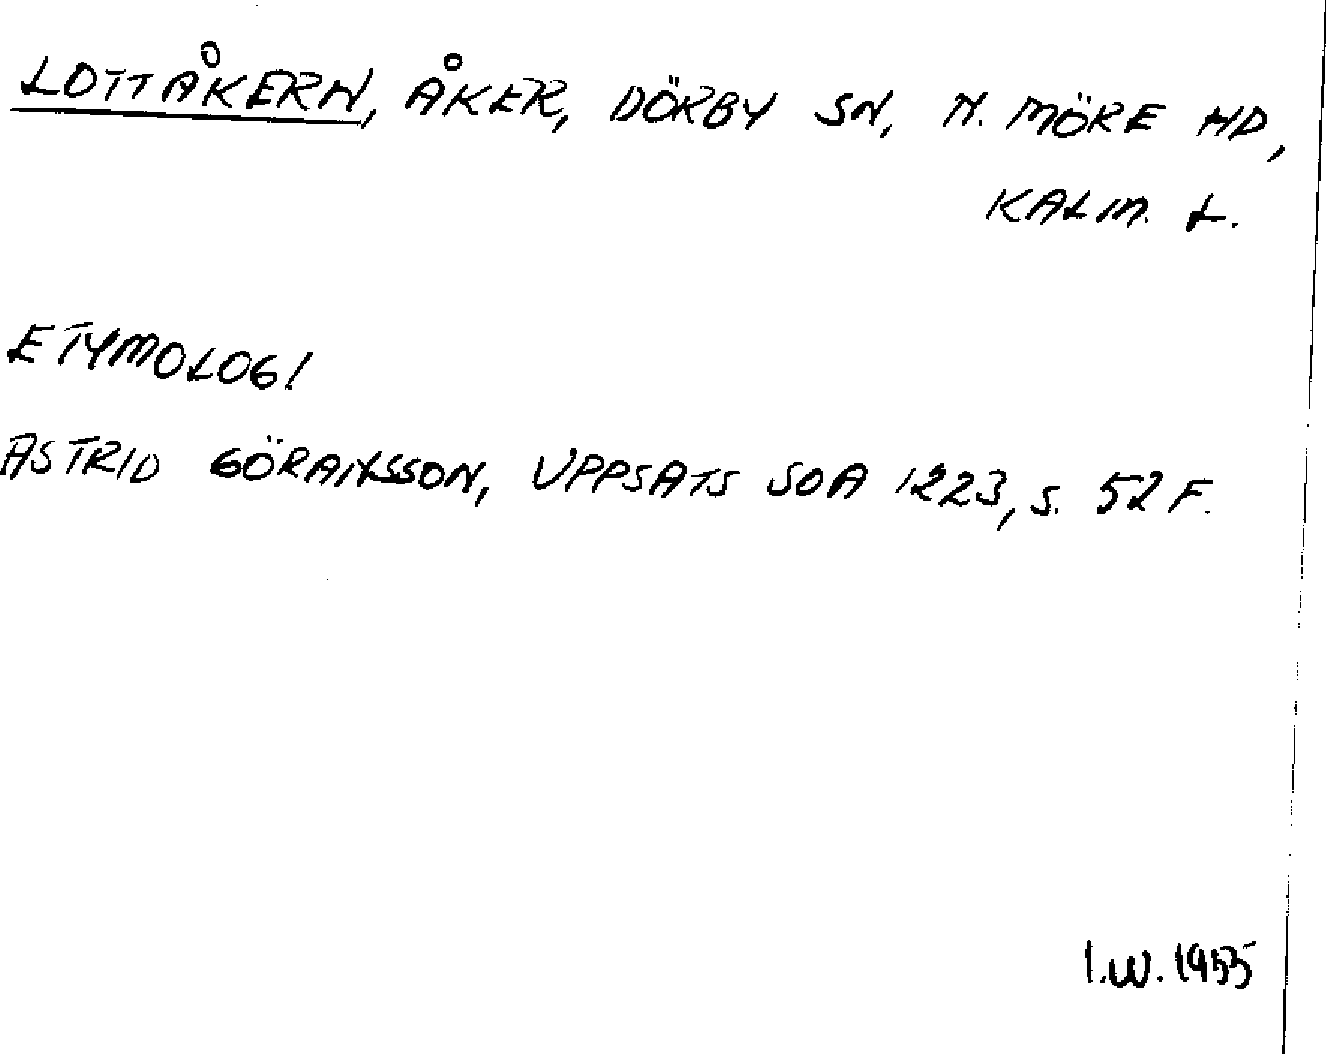 LOTTÅKERN, ÅKER, DÖRBY SN, N. MÖRE HD,
KALM. L.
ETYMOLOGI
ASTRID GÖRANSSON, UPPSATS SOA 1223, S. 52 F.
I.W. 1955